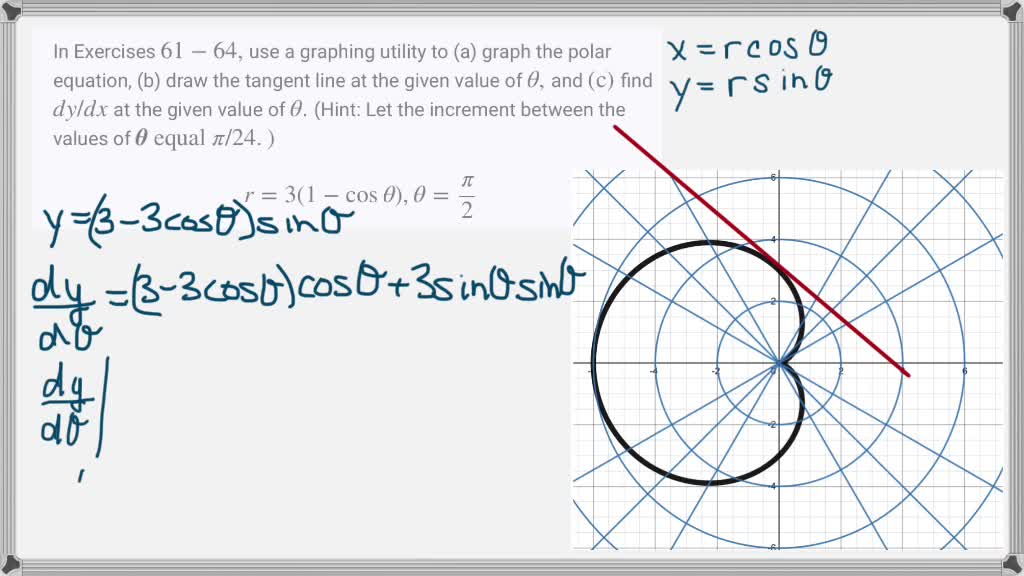 In Exercises 61 − 64, use a graphing utility to (a) graph the polar
equation, (b) draw the tangent line at the given value of θ, and (c) find
dy/dx at the given value of θ. (Hint: Let the increment between the
values of θ equal π/24. )
r = 3(1 − cos θ), θ = π/2
x = r cos θ
y = r sin θ
y = (3 - 3cosθ) sinθ
dy/dθ = (3 - 3cosθ) cosθ + 3 sinθ sinθ
dy/dθ |
6
4
2
-4 -2 0 2 6
-2
-4
-6